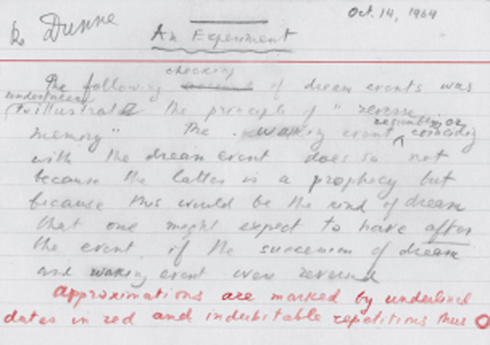 Oct. 14, 1964
Dunne
An Experiment
checking
The following of dream events was
undertaken
(to illustrate the principle of "reverse
resembling or
memory" The waking event coinciding
with the dream event does so not
because the latter is a prophecy but
because this would be the kind of dream
that one might expect to have after
the event if the succession of dream
and waking event were reversed
Approximations are marked by underlined
dates in red and indubitable repetitions thus O